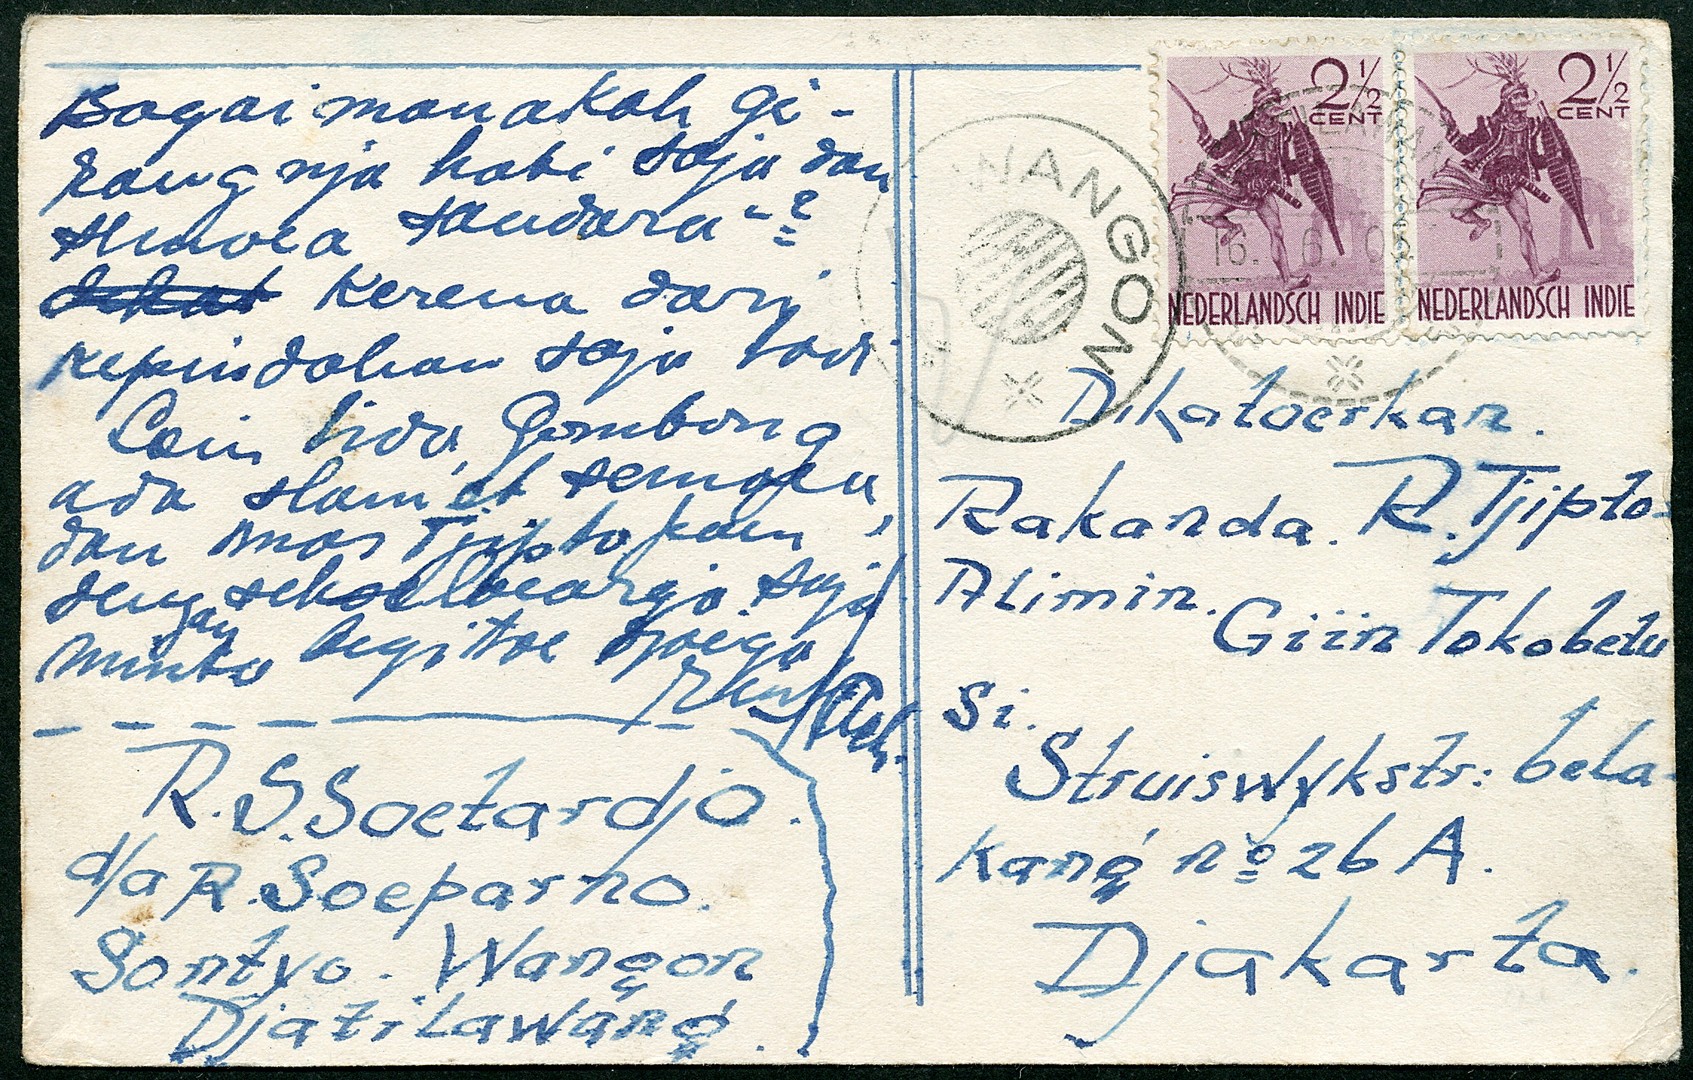 Bagaimanakah gi-
rangnja hati saja dan
semoea saudara"?
Kerena dari
kepindahan saja dari
Gombong
ada slamet semoea,
dan mas Tjipto
dengan saja
minta begitoe djoega
R.S. Soetardjo.
d/a R. Soeparno.
Sontyo. Wangon
Djatilawang.
WANGON
16. 6. 03
2½
CENT
NEDERLANDSCH INDIE
2½
CENT
NEDERLANDSCH INDIE
Dikatoerkan.
Rakanda. R. Tjipto-
Alimin. Giin Tokobetu
Si.
Struiswykstr: bela-
kang no 26 A.
Djakarta.